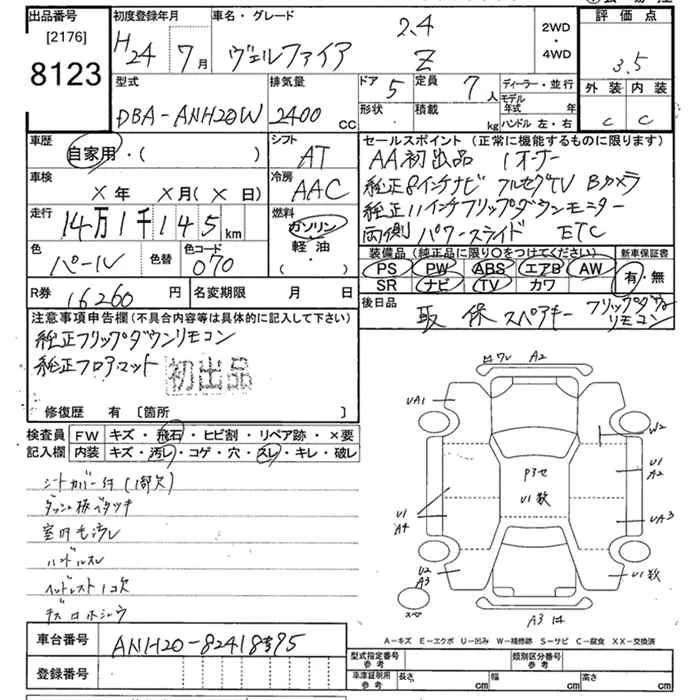 出品番号
[2176]
8123
初度登録年月
H24 7月
車名・グレード
2.4
ヴェルファイア Z
2WD
・
4WD
評価点
3.5
外装 内装
C C
型式
DBA-ANH20W
排気量
2400 cc
ドア 5
定員 7人
形状 ・
積載 kg
ディーラー・並行
モデル年式 年
ハンドル 左・右
車歴
自家用・( )
シフト
AT
車検
X年 X月(X日)
冷房
AAC
走行
14万1千145km
燃料
ガソリン・軽・油・( )
色
パール
色替
色コード
070
R券 16260円
名変期限 月 日
セールスポイント (正常に機能するものに限ります)
AA初出品 1オーナー
純正8インチナビ フルセグTV Bカメラ
純正11インチフリップダウンモニター
両側パワースライド ETC
装備品 (純正品に限り○をつけてください)
PS PW ABS エアB AW
SR ナビ TV カワ
新車保証書
有・無
後日品
取 保 スペアキー フリップダウンリモコン
注意事項申告欄(不具合内容等は具体的に記入して下さい)
純正フリップダウンリモコン
純正フロアマット
初出品
修復歴 有 [箇所 ]
検査員記入欄
FW キズ・飛石・ヒビ割・リペア跡・×要
内装 キズ・汚レ・コゲ・穴・スレ・キレ・破レ
シートカバー付(1部欠)
ダッシュ板ベタツキ
室内毛汚レ
ハンドルスレ
ヘッドレスト1コ欠
車台番号
ANH20-8241895
登録番号
ワレ A2
UA1
W2
P3セ
U1数
U1
A2
U1
A4
UA3
U2
A3
U1数
スペア
A3
A-キズ E-エクボ U-凹み W-補修跡 S-サビ C-腐食 XX-交換済
型式指定番号 参考
類別区分番号 参考
車庫証明用 参考
長さ cm
幅 cm
高さ cm